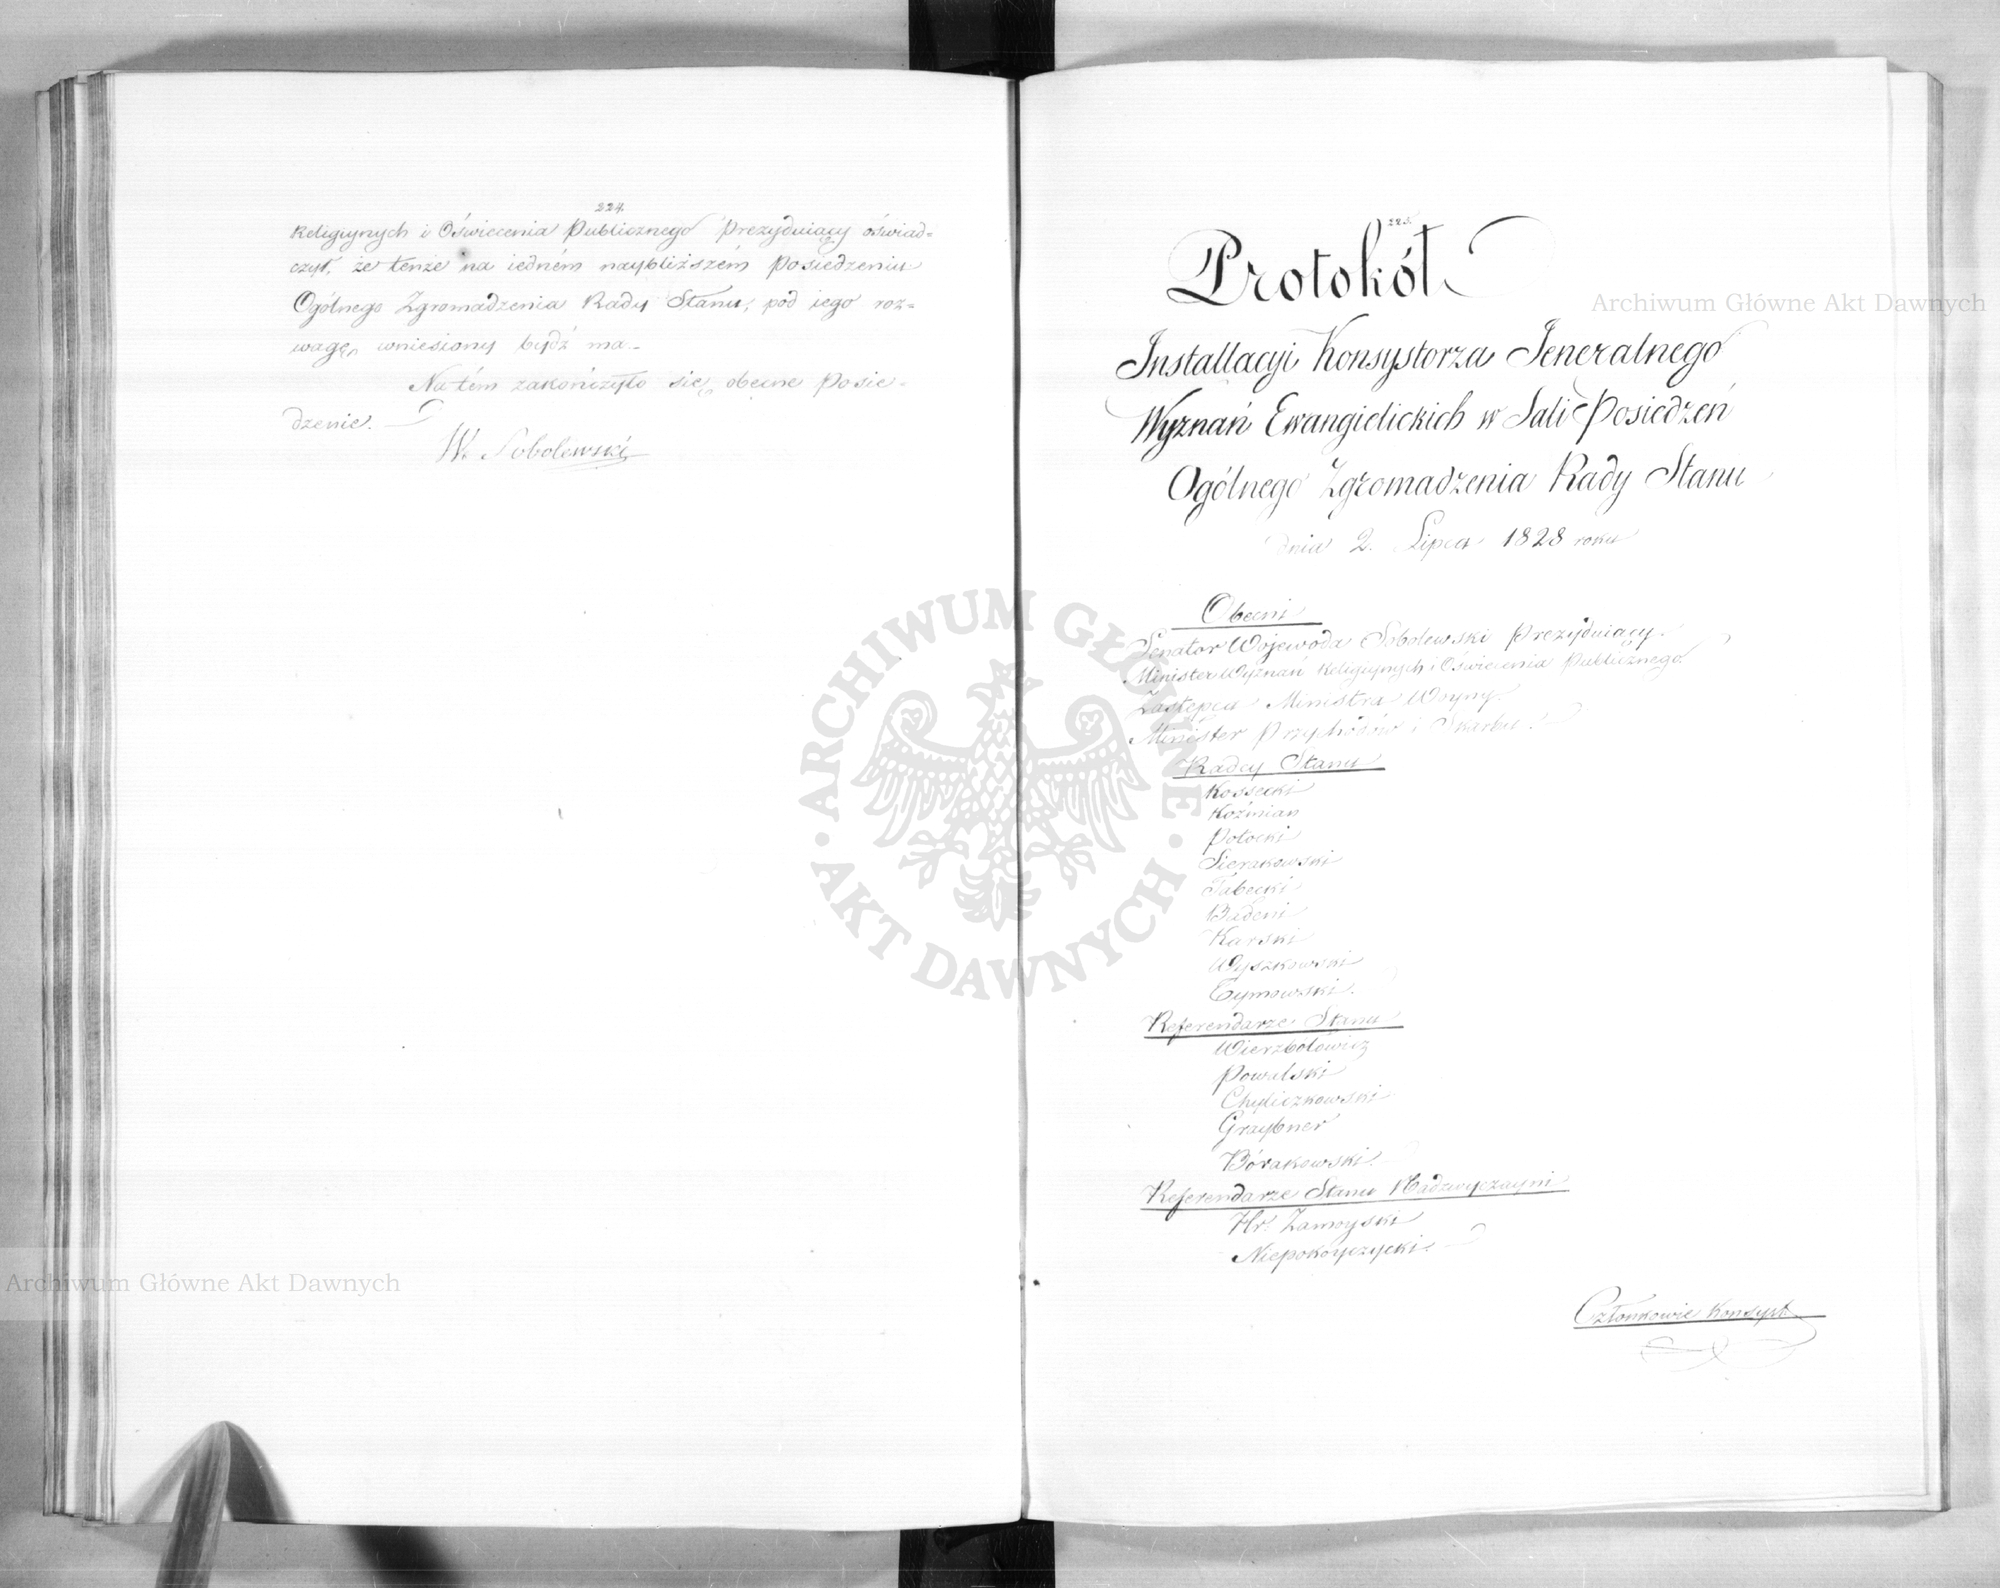 224.
Religiynych i Oświecenia Publicznego Prezyduiący oświad=
czył, że tenże na iedném naybliższém Posiedzeniu
Ogólnego Zgromadzenia Rady Stanu, pod iego roz=
wagę wniesiony bydź ma.
Na tém zakończyło się obecne Posie=
dzenie.
W. Sobolewski
225.
Protokół
Installacyi Konsystorza Jeneralnego
Wyznań Ewangielickich w Sali Posiedzeń
Ogólnego Zgromadzenia Rady Stanu
dnia 2. Lipca 1828 roku
Obecni
Senator Wojewoda Sobolewski Prezyduiący.
Minister Wyznań Religiynych i Oświecenia Publicznego.
Zastępca Ministra Woyny.
Minister Przychodów i Skarbu.
Radcy Stanu
Kossecki
Koźmian
Potocki
Sierakowski
Tabęcki
Badeni
Karski
Wyszkowski
Tymowski.
Referendarze Stanu
Wierzbołowicz
Powalski
Chyliczkowski
Graybner
Bórakowski.
Referendarze Stanu Nadzwyczayni
Hr. Zamoyski
Niepokóyczycki.
Członkowie Konsyst.
Archiwum Główne Akt Dawnych
ARCHIWUM GŁÓWNE · AKT DAWNYCH ·
Archiwum Główne Akt Dawnych